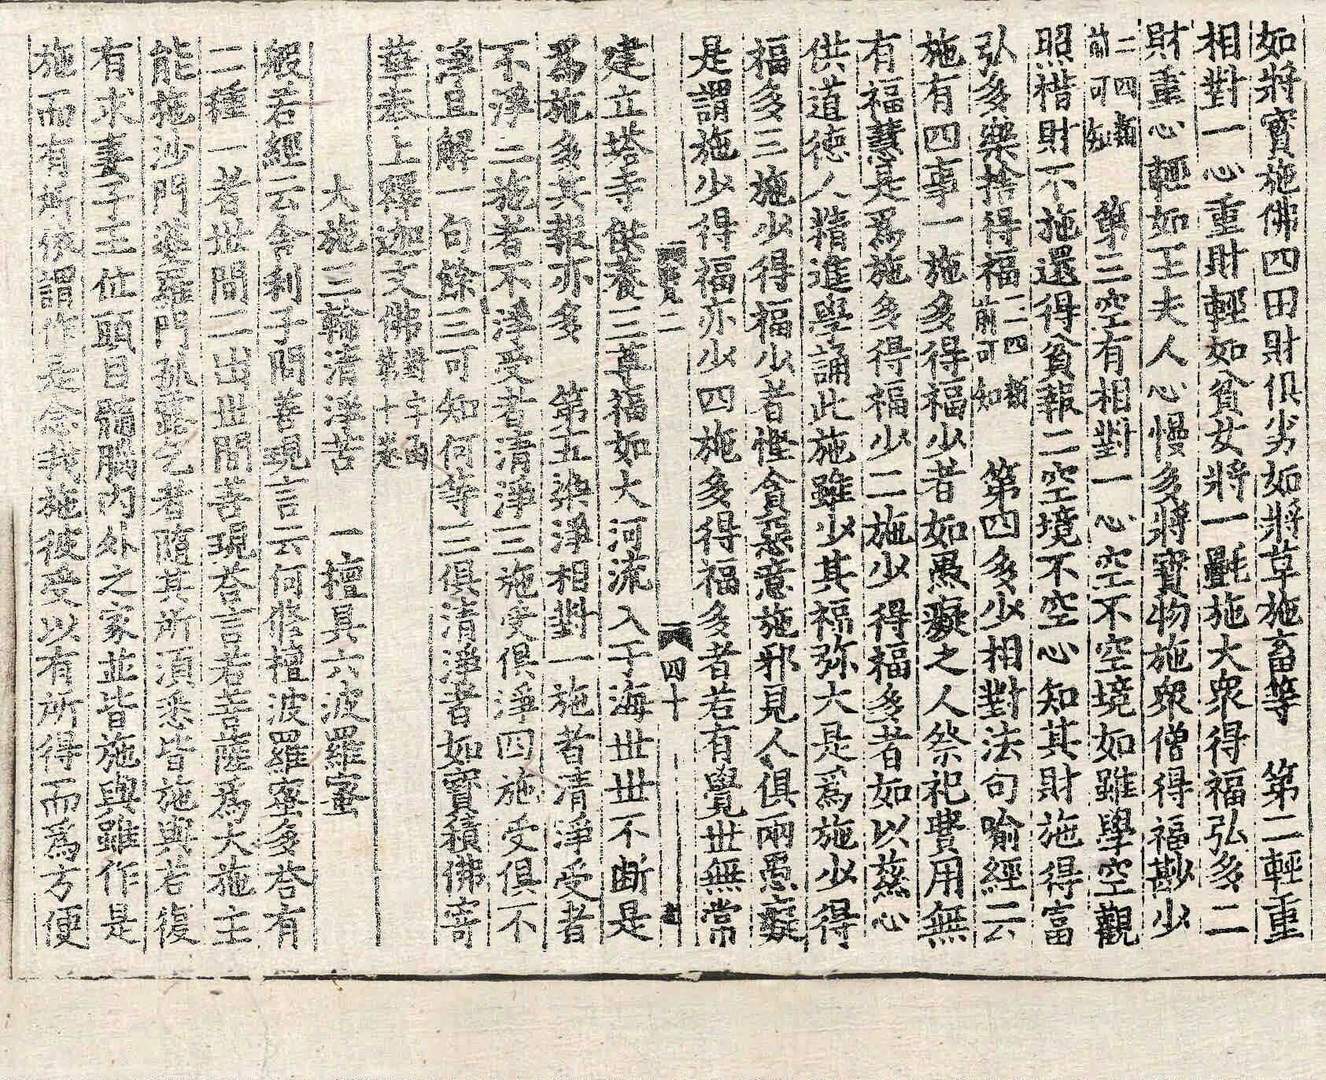 如將寶施佛四田財俱劣如將草施畜等　第二輕重
相對一心重財輕如貧女將一㲲施大衆得福弘多二
財重心輕如王夫人心慢多將寶物施衆僧得福尠少
二四類
前可知　第三空有相對一心空不空境如雖學空觀
照惜財不施還得貧報二空境不空心知其財施得富
弘多樂捨得福三四類前可知　第四多少相對法句喻經云
施有四事一施多得福少者如愚癡之人祭祀費用無
有福慧是爲施多得福少二施少得福多者如以慈心
供道德人精進學誦此施雖少其福弥大是爲施少得
福多三施少得福少者慳貪惡意施邪見人俱兩愚癡
是謂施少得福亦少四施多得福多者若有覺世無常
寶二　四十
建立塔寺供養三尊福如大河流入于海世世不断是
爲施多其報亦多　第五染淨相對一施者清淨受者
不淨二施者不淨受者清淨三施受俱淨四施受俱不
淨且解一句餘三可知何等三俱清淨者如寶積佛寄
華奉上釋迦文佛
大施三輪清淨苦　一檀具六波羅蜜
般若經云舍利子問善現言云何修檀波羅蜜多荅有
二種一者世間二出世間善現荅言若菩薩爲大施主
能施沙門婆羅門孤露乞者隨其所須悉皆施與若復
有求妻子王位頭目髓腦内外之家並皆施與雖作是
施而有所依謂作是念我施彼受以有所得而爲方便